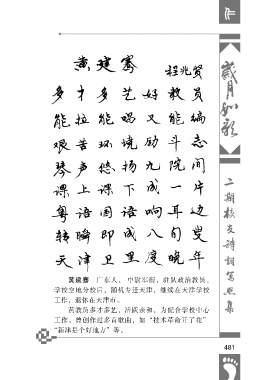 黄建骞
程兆贤
多才多艺好教员
能拉能唱又能编
艰苦环境励斗志
琴声悠扬九院间
课上课下成一片
粤语国语响耳边
转瞬即成八旬叟
天津卫里度晚年
黄建骞 广东人，中尉军衔，驻队政治教员。
学校空地分校后，随机专迁天津，继续在天津学校
工作，退休在天津市。
黄教员多才多艺，活跃亲和，为配合学校中心
工作，曾创作过多首歌曲，如“技术革命开了花”
“新津是个好地方”等。
岁月如歌
二期校友诗词写照集
481